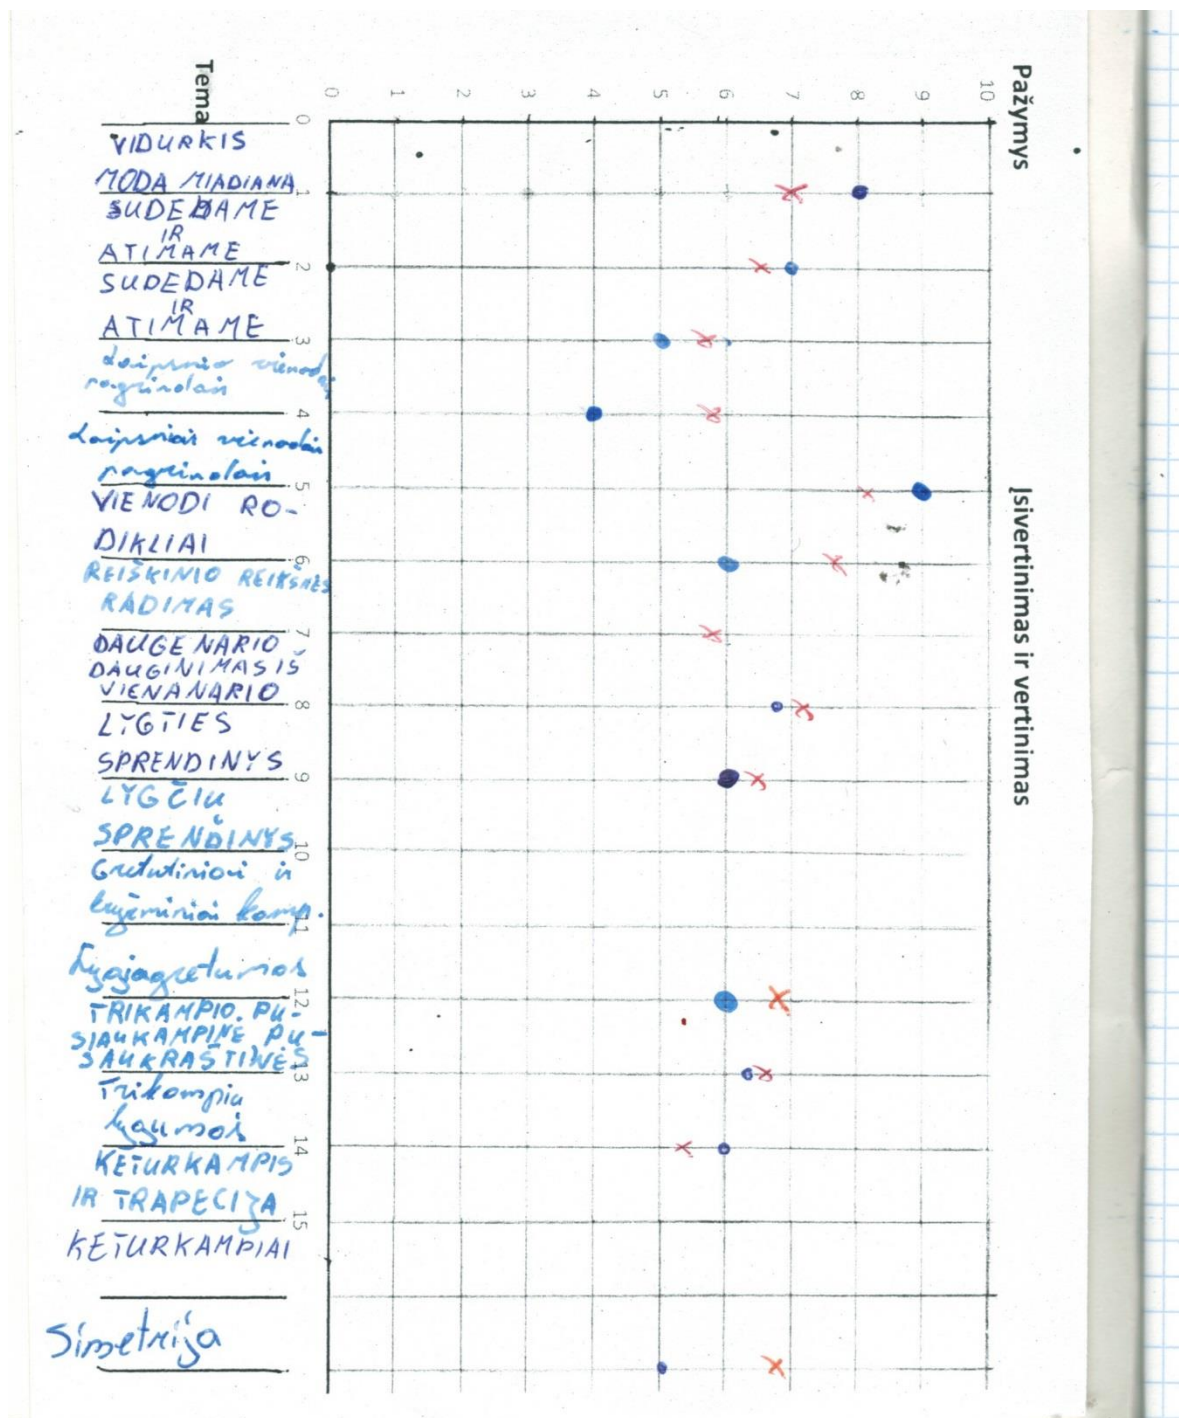 Pažymys
Įsivertinimas ir vertinimas
10
9
8
7
6
5
4
3
2
1
0
Tema
0
VIDURKIS
MODA MIADIANA
1
SUDEDAME
IR
ATIMAME
2
SUDEDAME
IR
ATIMAME
3
Laipsnio vienodai
pagrindais
4
Laipsniai vienodais
pagrindais
5
VIENODI RO-
DIKLIAI
6
REIŠKINIO REIKSMĖS
RADIMAS
7
DAUGENARIO
DAUGINIMAS IŠ
VIENANARIO
8
LYGTIES
SPRENDINYS
9
LYGČIU
SPRENDINYS
10
Gretutiniai ir
kryžminiai kamp.
11
Lygiagretumas
12
TRIKAMPIO. PU-
SIAUKAMPINE PU-
SAUKRAŠTINĖS
13
Trikampiu
lygumas
14
KETURKAMPIS
IR TRAPECIJA
15
KETURKAMPIAI
Simetrija